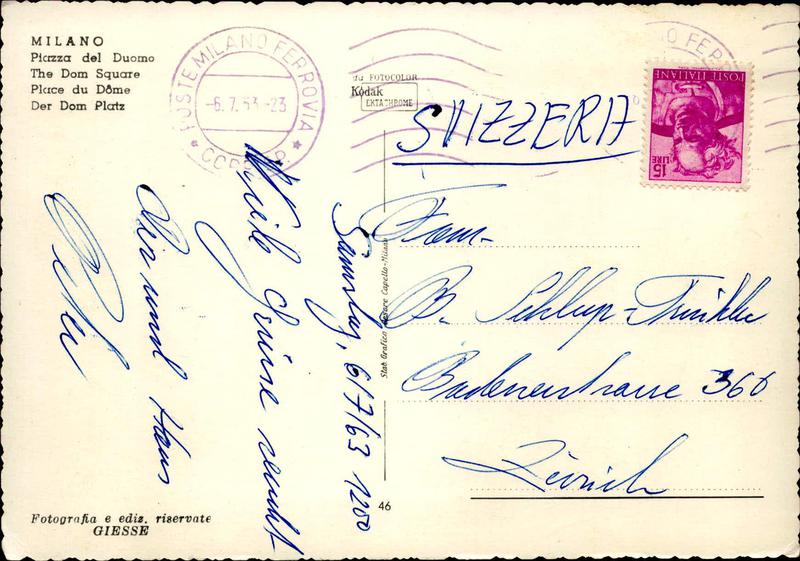 MILANO
Piazza del Duomo
The Dom Square
Place du Dôme
Der Dom Platz
POSTE MILANO FERROVIA
-6.7.63.-23
FOTOCOLOR
Kodak
EKTACHROME
POSTE ITALIANE
15 LIRE
SVIZZERA
Fam.
B.
Badenerstrasse 360
Zürich
Samstag, 6/7/63 1200
Viele Grüsse sendet
und Hans
Stab. Grafico Cesare Capello-Milano
46
Fotografia e ediz. riservate
GIESSE